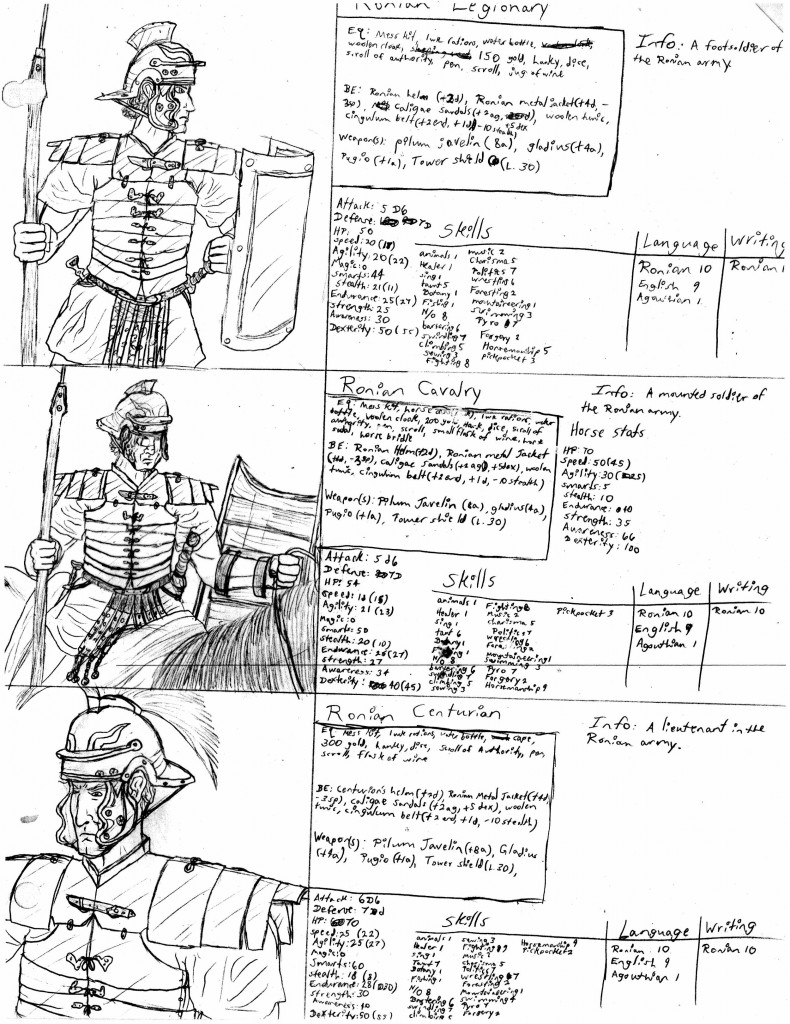 Ronian Legionary
EQ: Mess kit, 1wk rations, water bottle,
woolen cloak, 150 gold, hanky, dice,
scroll of authority, pen, scroll, jug of wine
BE: Ronian helm (+2d), Ronian metal jacket (+4d, -
3sp), Caligae Sandals (+2ag, ), woolen tunic,
cingulum belt (+2end, +1d, -10 stealth) +5 dex
Weapon(s): pilum javelin (8a), gladius (+4a),
Pugio (+1a), Tower shield (L.30)
Info: A footsoldier of
the Ronian army.
Attack: 5 D6
Defense: 7D
HP: 50
Speed: 20 (18)
Agility: 20 (22)
Magic: 0
Smarts: 44
Stealth: 21 (11)
Endurance: 25 (27)
Strength: 25
Awareness: 30
Dexterity: 50
Skills
animals 1
Healer 1
sing 1
taunt 5
Botany 1
Fishing 1
N/O 8
bartering 6
swindling 7
climbing 5
sewing 3
Fighting 8
music 2
Charisma 5
Politics 7
wrestling 6
Foresting 2
mountaineering 1
swimming 3
Pyro 7
Forgery 2
Horsemanship 5
pickpocket 3
Language
Ronian 10
English 9
Agouthian 1
Writing
Ronian 1
Ronian Cavalry
EQ: Mess kit, horse 1wk rations, water
bottle, woolen cloak, 200 gold, dice, scroll of
authority, pen, scroll, small flask of wine, horse
horse bridle
BE: Ronian Helm (+2d), Ronian metal Jacket
(+4d, -3sp), Caligae Sandals (+2ag, +5dex), woolen
tunic, cingulum belt (+2end, +1d, -10 stealth)
Weapon(s): Pilum Javelin (8a), gladius (+4a),
Pugio (+1a), Tower shield (L.30)
Info: A mounted soldier of
the Ronian army.
Horse stats
HP: 70
Speed: 50 (45)
Agility: 30 (25)
smarts: 5
stealth: 10
Endurance: 40
strength: 35
Awareness: 66
Dexterity: 100
Attack: 5 d6
Defense: 7D
HP: 54
Speed: 18 (15)
Agility: 21 (23)
Magic: 0
Smarts: 50
Stealth: 20 (10)
Endurance: 25 (27)
Strength: 27
Awareness: 34
Dexterity: 40 (45)
Skills
animals 1
Healer 1
sing 1
taunt 6
Botany 1
Fishing 1
N/O 8
bartering 6
swindling 7
climbing 5
sewing 3
Fighting 8
music 2
charisma 5
Politics 7
wrestling 6
Foresting 2
mountaineering 1
swimming 3
Pyro 7
Forgery 2
Horsemanship 9
Pickpocket 3
Language
Ronian 10
English 9
Agouthian 1
Writing
Ronian 10
Ronian Centurian
EQ Mess kit, 1wk rations, water bottle, cape,
300 gold, hanky, dice, scroll of Authority, pen,
scroll, flask of wine
BE: Centurion's helm (+2d), Ronian Metal Jacket (+4d
-3sp), caligae sandals (+2ag, +5 dex), woolen
tunic, cingulum belt (+2 end, +1d, -10 stealth)
Weapon(s): Pilum Javelin (+8a), Gladius
(+4a), Pugio (+1a), Tower shield (L.30),
Info: A lieutenant in the
Ronian army.
Attack: 6D6
Defense: 7d
HP: 70
Speed: 25 (22)
Agility: 25 (27)
Magic: 0
Smarts: 60
Stealth: 18 (8)
Endurance: 28 (30)
Strength: 30
Awareness: 40
Dexterity: 50
Skills
animals 1
Healer 1
sing 1
Taunt 7
Botany 1
Fishing 1
N/O 8
Bartering 6
swindling 7
climbing
sewing 3
Fighting 9
music 2
charisma 5
Politics
wrestling 7
Foresting 2
mountaineering 1
swimming 4
Pyro 7
Forgery 2
Horsemanship 9
Pickpocket 2
Language
Ronian 10
English 9
Agouthian 1
Writing
Ronian 10